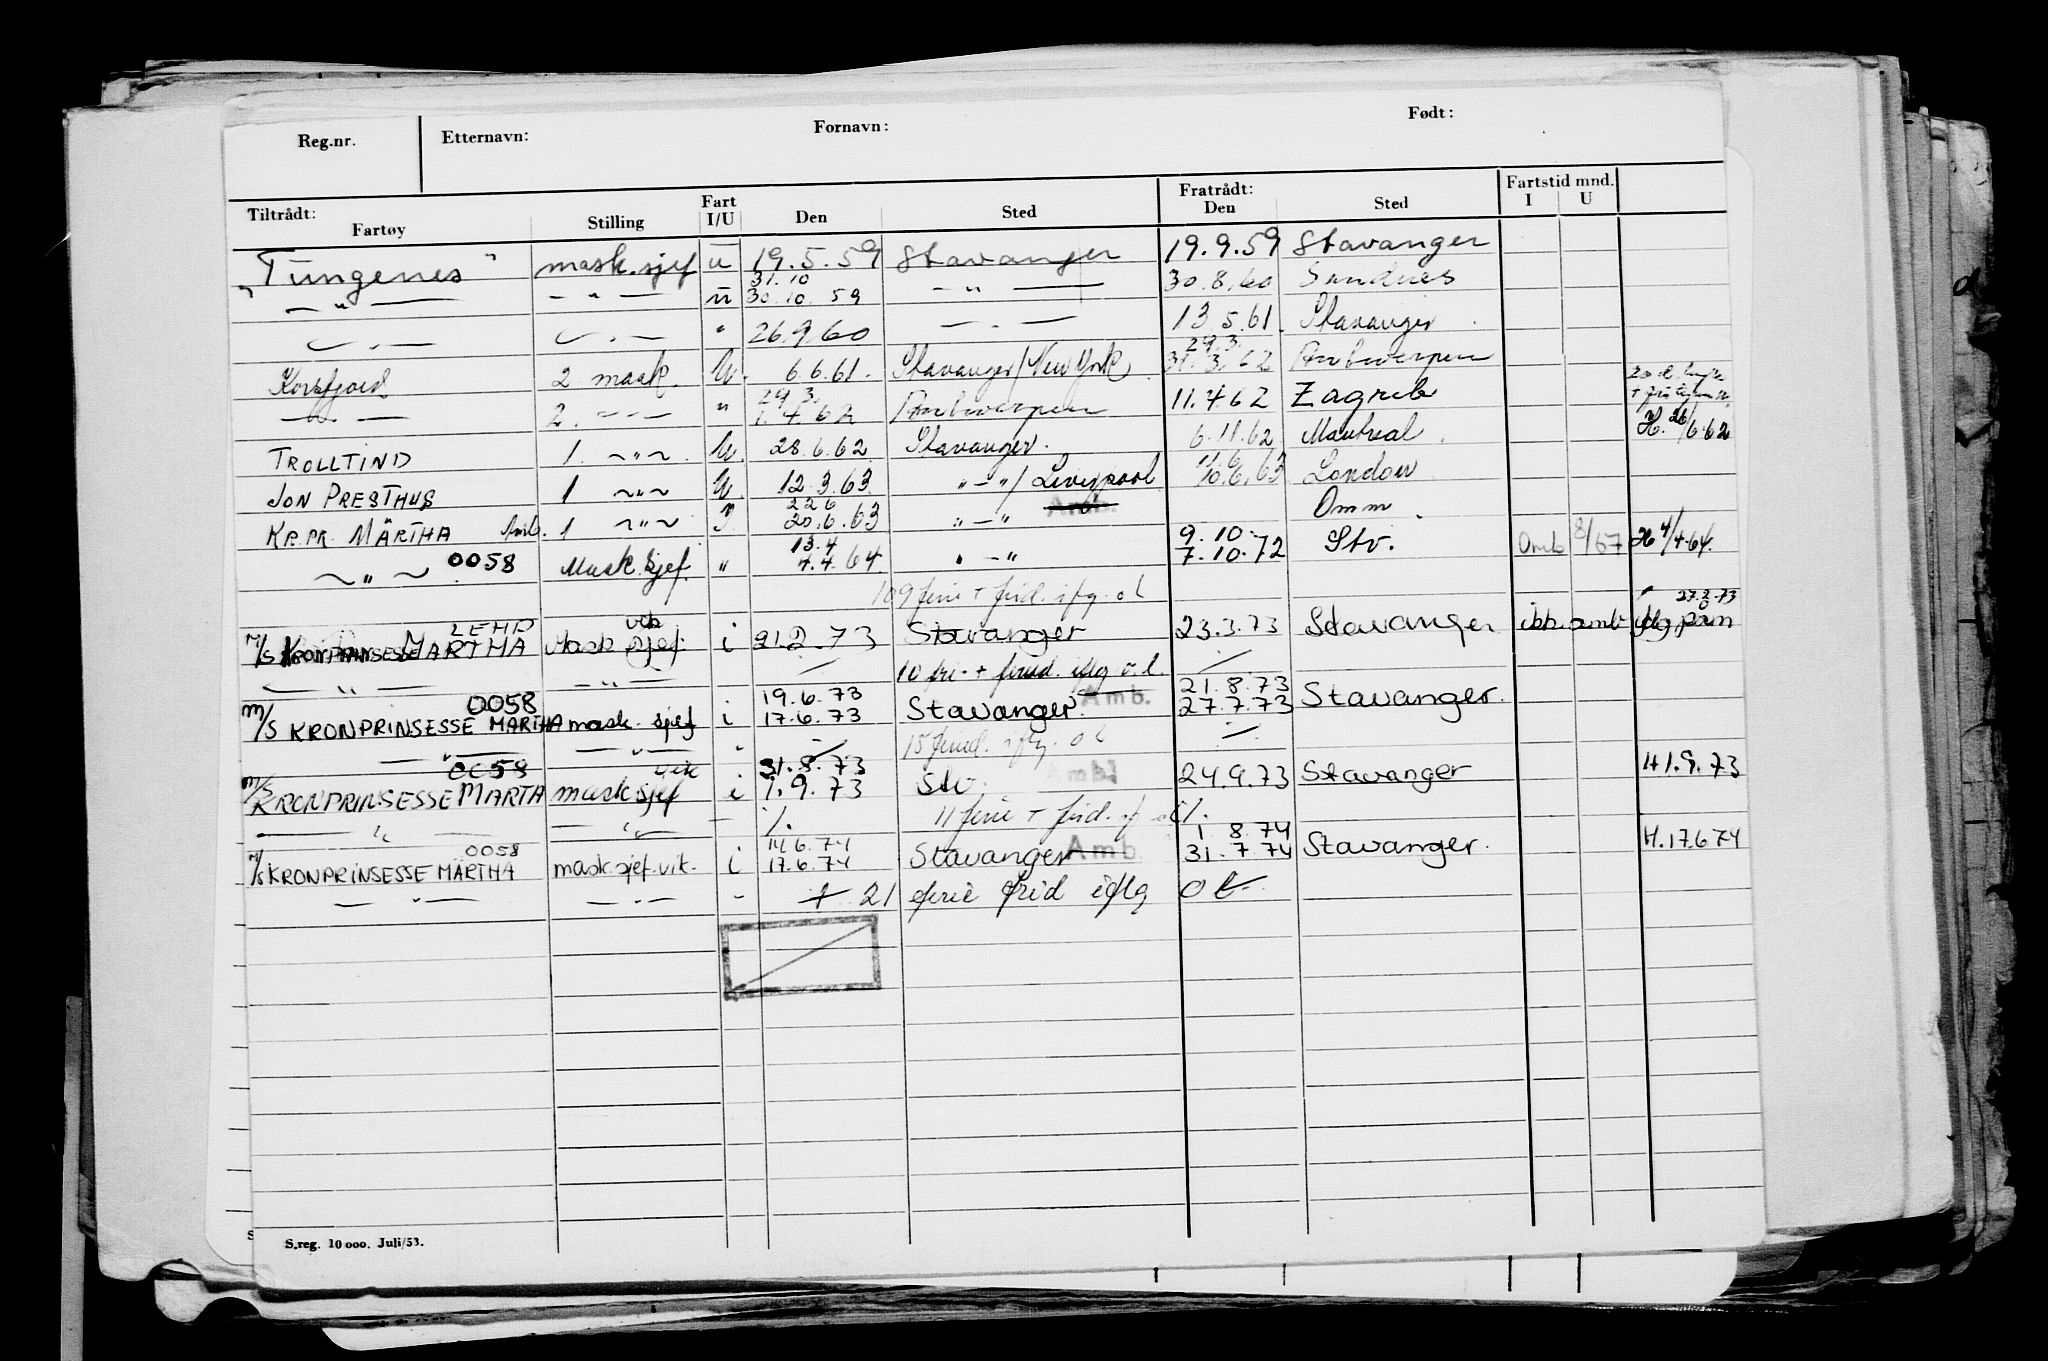 Reg.nr. Etternavn: Fornavn: Født:
Tiltrådt: Fratrådt: Fartstid mnd.
Fartøy Stilling Fart I/U Den Sted Den Sted I U
"Tungenes" mask.sjef u 19.5.59 Stavanger 19.9.59 Stavanger
31.10
— " — — " — u 30.10.59 — " — 30.8.60 Sandnes
— " — — " — " 26.9.60 — " — 13.5.61 Stavanger
29.3.
Korsfjord 2 mask. U. 6.6.61. Stavanger/New York 31.3.62 Antwerpen
29.3.
— " — 2. — " — " 1.4.62 Antwerpen 11.4.62 Zagreb
TROLLTIND 1. ~"~ U. 28.6.62 Stavanger. 6.11.62 Montreal H. 26/6.62
JON PRESTHUS 1 ~"~ U. 12.3.63 "—"/Liverpool 10.6.63 London
22.6 Amb. Omm
KR.PR. MÄRTHA Amb. 1 ~"~ I. 20.6.63 "—"
13.4 9.10.
~"~ 0058 Mask.sjef. " 4.4.64 "—" 7.10.72 Stv. Omb 8/67 H 4/4-64.
109 ferie + frid. iflg. ol
LEHD vik 27.2.73
M/S KRONPRINSESSE MARTHA Mask sjef. i 21.2.73 Stavanger 23.3.73 Stavanger ikke amb
— " — — " — 10 fri. + frid. iflg o.l.
0058 19.6.73 Amb. 21.8.73
M/S KRONPRINSESSE MARTHA mask. sjef i 17.6.73 Stavanger 27.7.73 Stavanger.
— " — — " — " 15 frid. iflg. ol
0058 vik 31.8.73 Amb.
M/S KRONPRINSESSE MARTHA mask sjef i 1.9.73 Stv. 24.9.73 Stavanger H1.9.73
— " — — " — — 11 ferie + frid.
0058 14.6.74 Amb. 1.8.74
M/S KRONPRINSESSE MÄRTHA mask.sjef.vik. i 17.6.74 Stavanger 31.7.74 Stavanger. H.17.6.74
— " — — " — - + 21 ferie frid iflg ol
S.reg. 10 000. Juli/53.